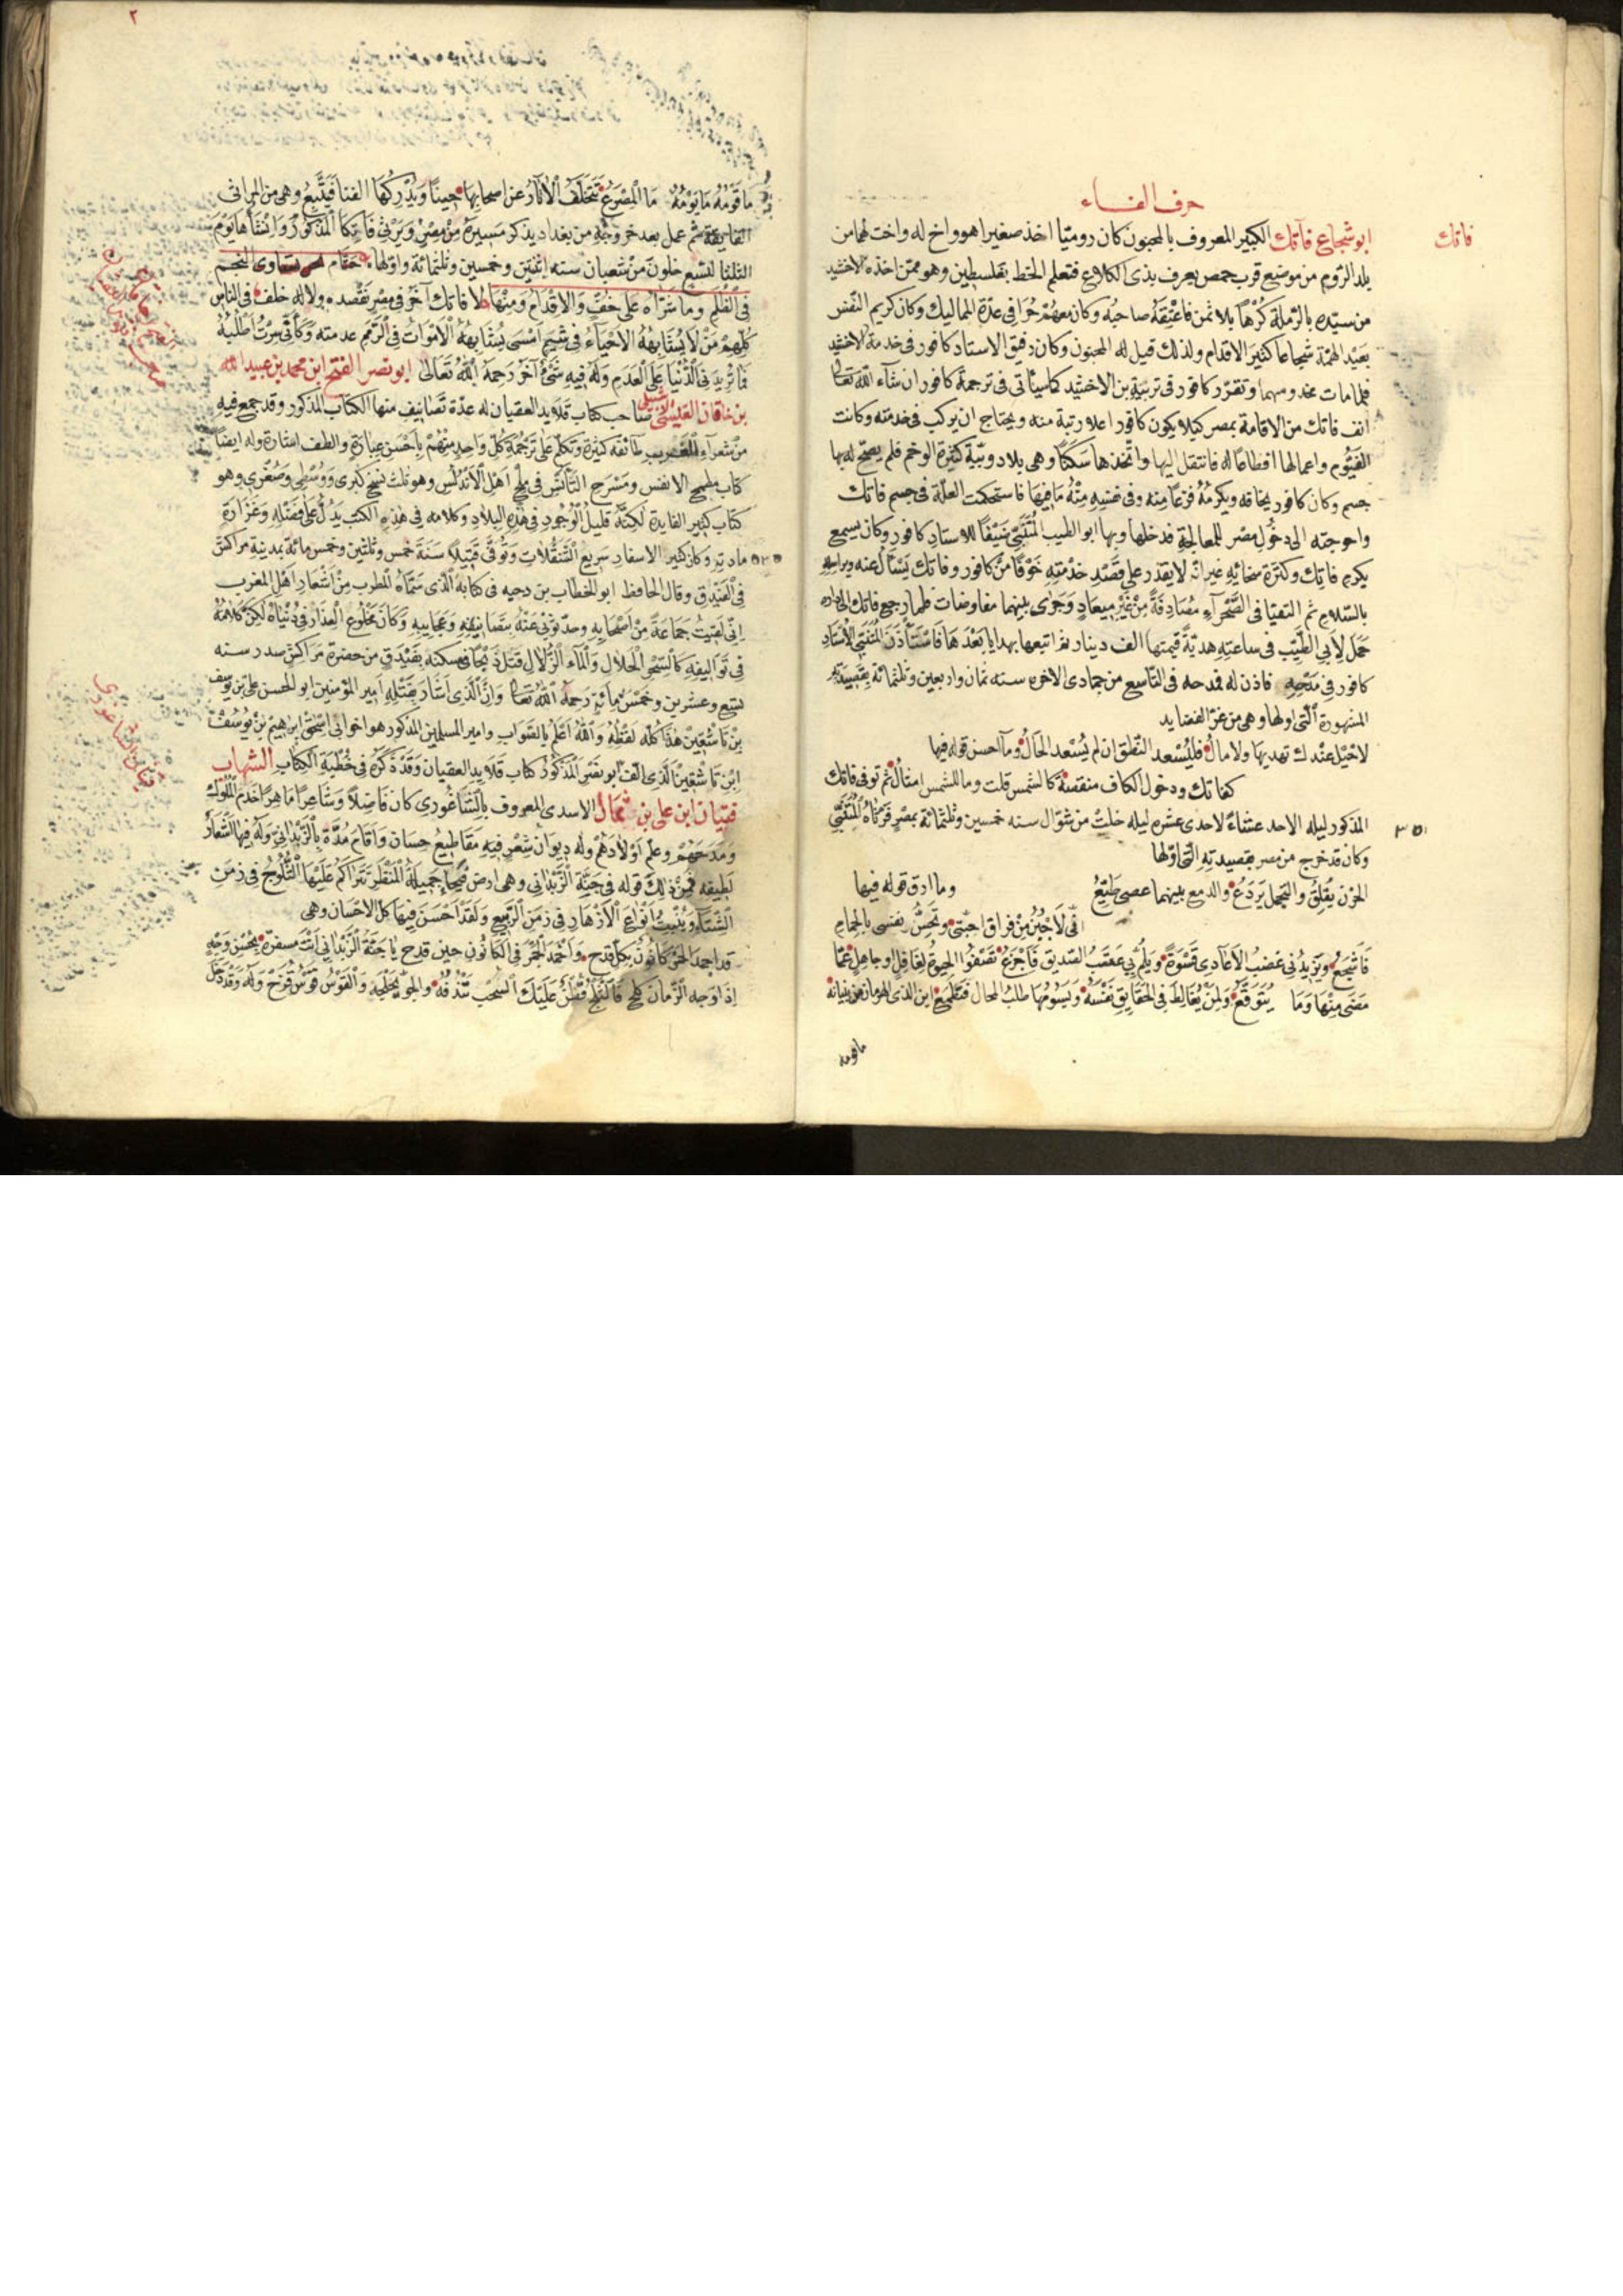 حرف الفاء
فاتك
ابو شجاع فاتك الكبير المعروف بالمجنون كان روميا اخذ صغيرا هو واخ له واخت لهما من
بلد الروم من موضع قرب حمص يعرف بذى الكلاع فتعلم الخط بفلسطين وهو ممن اخذه الاخشيد
من سيده بالرملة كرها بلا ثمن فاعتقه صاحبه وكان معهم حرا فى عدة المماليك وكان كريم النفس
بعيد الهمة شجاعا كثير الاقدام ولذلك قيل له المجنون وكان رفيق الاستاد كافور فى خدمة الاخشيد
فلما مات مخدومهما وتقرر كافور فى تربية بن الاخشيد كما سيأتى فى ترجمة كافور ان شاء الله تعالى
انف فاتك من الاقامة بمصر كيلا يكون كافور اعلا رتبة منه ويحتاج ان يركب فى خدمته وكانت
الفيوم واعمالها اقطاعا له فانتقل اليها واتخذها سكنا وهى بلاد وبيّة كثيرة الوخم فلم يصح له بها
جسم وكان كافور يخافه ويكرمه فزعا منه وفى نفسه منه ما فيها فاستحكمت العلة فى جسم فاتك
واحوجته الى دخول مصر للمعالجة فدخلها وبها ابو الطيب المتنبى ضيفا للاستاد كافور وكان يسمع
بكرم فاتك وكثرة سخائه غير انه لا يقدر على قصد خدمته خوفا من كافور وفاتك يسأل عنه ويراسله
بالسلام ثم التقيا فى الصحراء مصادفة من غير ميعاد وجرى بينهما مفاوضات فلما رجع فاتك الى داره
حمل لابى الطيب فى ساعته هدية قيمتها الف دينار ثم اتبعها بهدايا بعدها فاستأذن المتنبى الاستاد
كافور فى مدحه فاذن له فمدحه فى التاسع من جمادى الاخره سنه ثمان واربعين وثلثمائة بقصيدته
المشهورة التى اولها وهى من غرّ القصايد
لا خيل عندك تهديها ولا مال فليسعد النطق ان لم يسعد الحال وما احسن قوله فيها
كفاتك ودخول الكاف منقصة كالشمس قلت وما للشمس امثال ثم توفى فاتك
المذكور ليله الاحد عشاء لاحدى عشره ليله خلت من شوال سنه خمسين وثلثمائة بمصر فرثاه المتنبى
٣٥٠
وكان قد خرج من مصر بقصيدته التى اولها
الحزن يقلق والتجمل يردع والدمع بينهما عصى طيع وما ارق قوله فيها
انى لاجبن من فراق احبتى وتحس نفسى بالحمام
فاشجع ويزيدنى غضب الاعادى قسوة ويلم بى عتب الصديق فاجزع تصفوا الحيوة لغافل وجاهل عما
مضى منها وما يتوقع ولمن يغالط فى الحقايق نفسه ويسومها طلب المحال فتطمع اين الذى الهرمان من بنيانه
ما قومه
٢
ما قومه ما يومه ما المصرع تتخلف الآثار عن اصحابها حينا ويدركها الفنا فتتبع وهى من المراثى
الفايقة ثم عمل بعد خروجه من بغداد يذكر مسيره من مصر ويرثى فاتكا المذكور وانشأها يوم
الثلثا لتسع خلون من شعبان سنه اثنتين وخمسين وثلثمائة واولها حتام نحن نساوى النجم
فى الظلم وما سراه على خف والاقدام ومنها لا فاتك آخر فى مصر نقصده ولا له خلف فى الناس
كلهم من لا يشابهه الاحياء فى شيم امسى يشابهه الاموات فى الرمم عدمته وكأنى سرت اطلبه
فما تزيدنى الدنيا على العدم وله فيه شئ آخر رحمه الله تعالى ابو نصر الفتح ابن محمد بن عبيد الله
بن خاقان القيسى صاحب كتاب قلايد العقيان له عدة تصانيف منها الكتاب المذكور وقد جمع فيه
الاشبيلى
من شعراء المغرب طائفه كثيرة وتكلم على ترجمة كل واحد منهم باحسن عبارة والطف اشارة وله ايضا
كتاب مطمح الانفس ومسرح التأنس فى ملح اهل الاندلس وهو ثلث نسخ كبرى ووسطى وصغرى وهو
كتاب كبير الفايدة لكنه قليل الوجود فى هذه البلاد وكلامه فى هذه الكتب يدل على فضله وغزارة
مادته وكان كثير الاسفار سريع التنقلات وتوفى قتيلا سنة خمس وثلثين وخمس مائة بمدينة مراكش
٥٣٥
فى الفندق وقال الحافظ ابو الخطاب بن دحيه فى كتابه الذى سماه المطرب من اشعار اهل المغرب
انى لقيت جماعة من اصحابه وحدثونى عنه بتصانيفه وعجايبه وكان مخلوع العذار فى دنياه لكن كلامه
فى تواليفه كالسحر الحلال والماء الزلال قتل ذبحا فى مسكنه بفندق من حضرة مراكش صدر سنه
تسع وعشرين وخمس مائة رحمه الله تعالى وان الذى اشار بقتله امير المؤمنين ابو الحسن على بن يوسف
بن تاشفين هذا كله لفظه والله اعلم بالصواب وامير المسلمين المذكور هو اخو ابى اسحق ابرهيم بن يوسف
ابن تاشفين الذى الف ابو نصر المذكور كتاب قلايد العقيان وقد ذكره فى خطبة الكتاب الشهاب
فتيان ابن على بن ثمال الاسدى المعروف بالشاغورى كان فاضلا وشاعرا ماهرا خدم الملوك
فتيان الشاغورى
ومدحهم وعلم اولادهم وله ديوان شعر فيه مقاطيع حسان واقام مدة بالزبدانى وله فيها اشعار
لطيفه فمن ذلك قوله فى جنة الزبدانى وهى ارض فيحاء جميلة المنظر تتراكم عليها الثلوج فى زمن
الشتاء وينبت انواع الازهار فى زمن الربيع ولقد احسن فيها كل الاحسان وهى
قد اجمد الخمر كانون بكل قدح واخمد الجمر فى الكانون حين قدح يا جنة الزبدانى انت مسفرة بحسن وجه
اذا وجه الزمان كلح فالثلج قطن عليك السحب تندفه والجو يحلجه والقوس قوس قزح وله وقد دخل